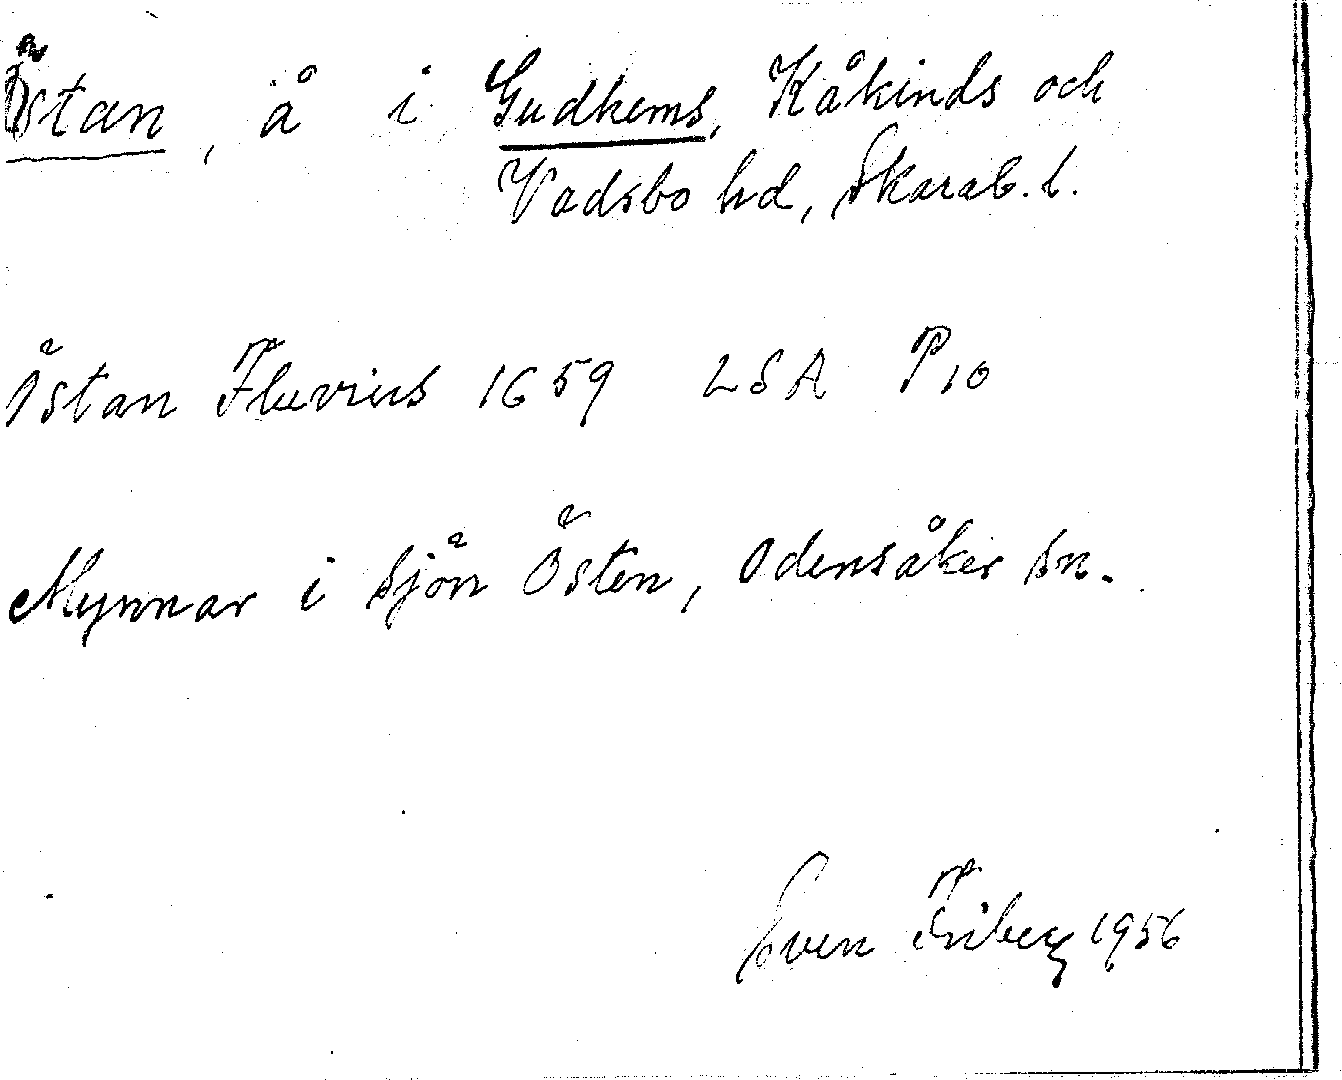 Östan, å i Gudhems, Kåkinds och
Vadsbo hd, Skarab. l.
Östan Fluvius 1659 LSA P10
Mynnar i sjön Östen, Odensåker sn.
Sven Friberg 1956